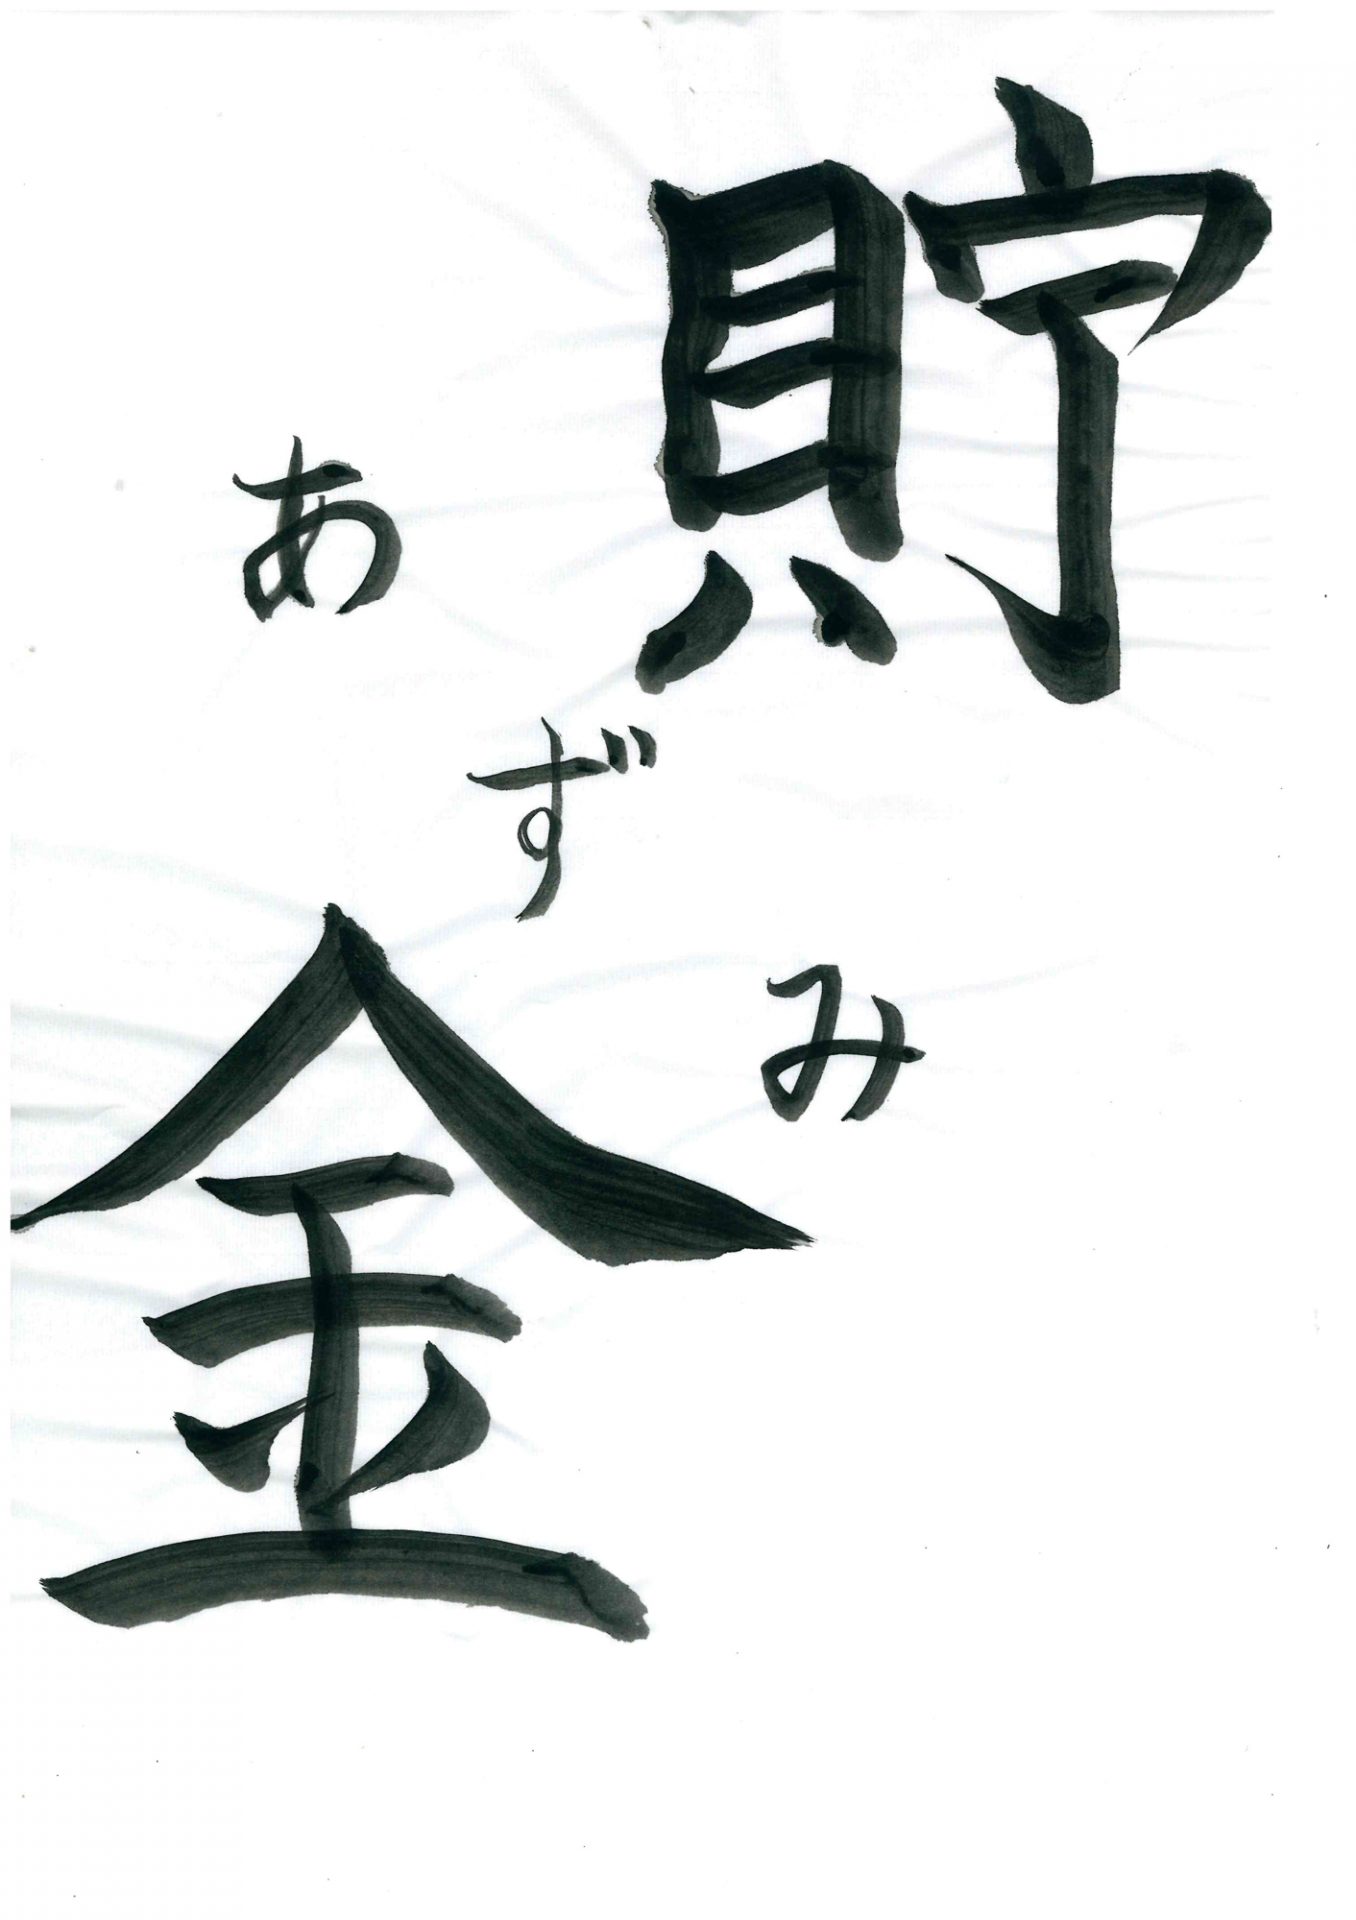 貯金
あずみ